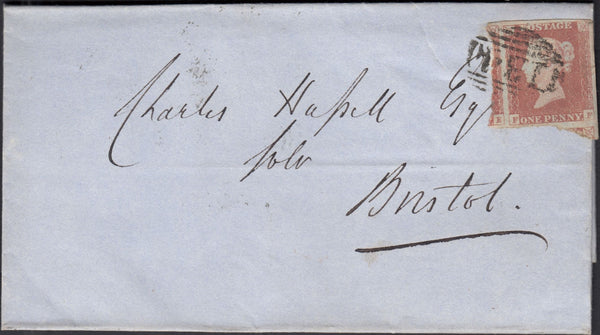 POSTAGE
E F ONE PENNY F
Charles Hassell Esq
Solr
Bristol.